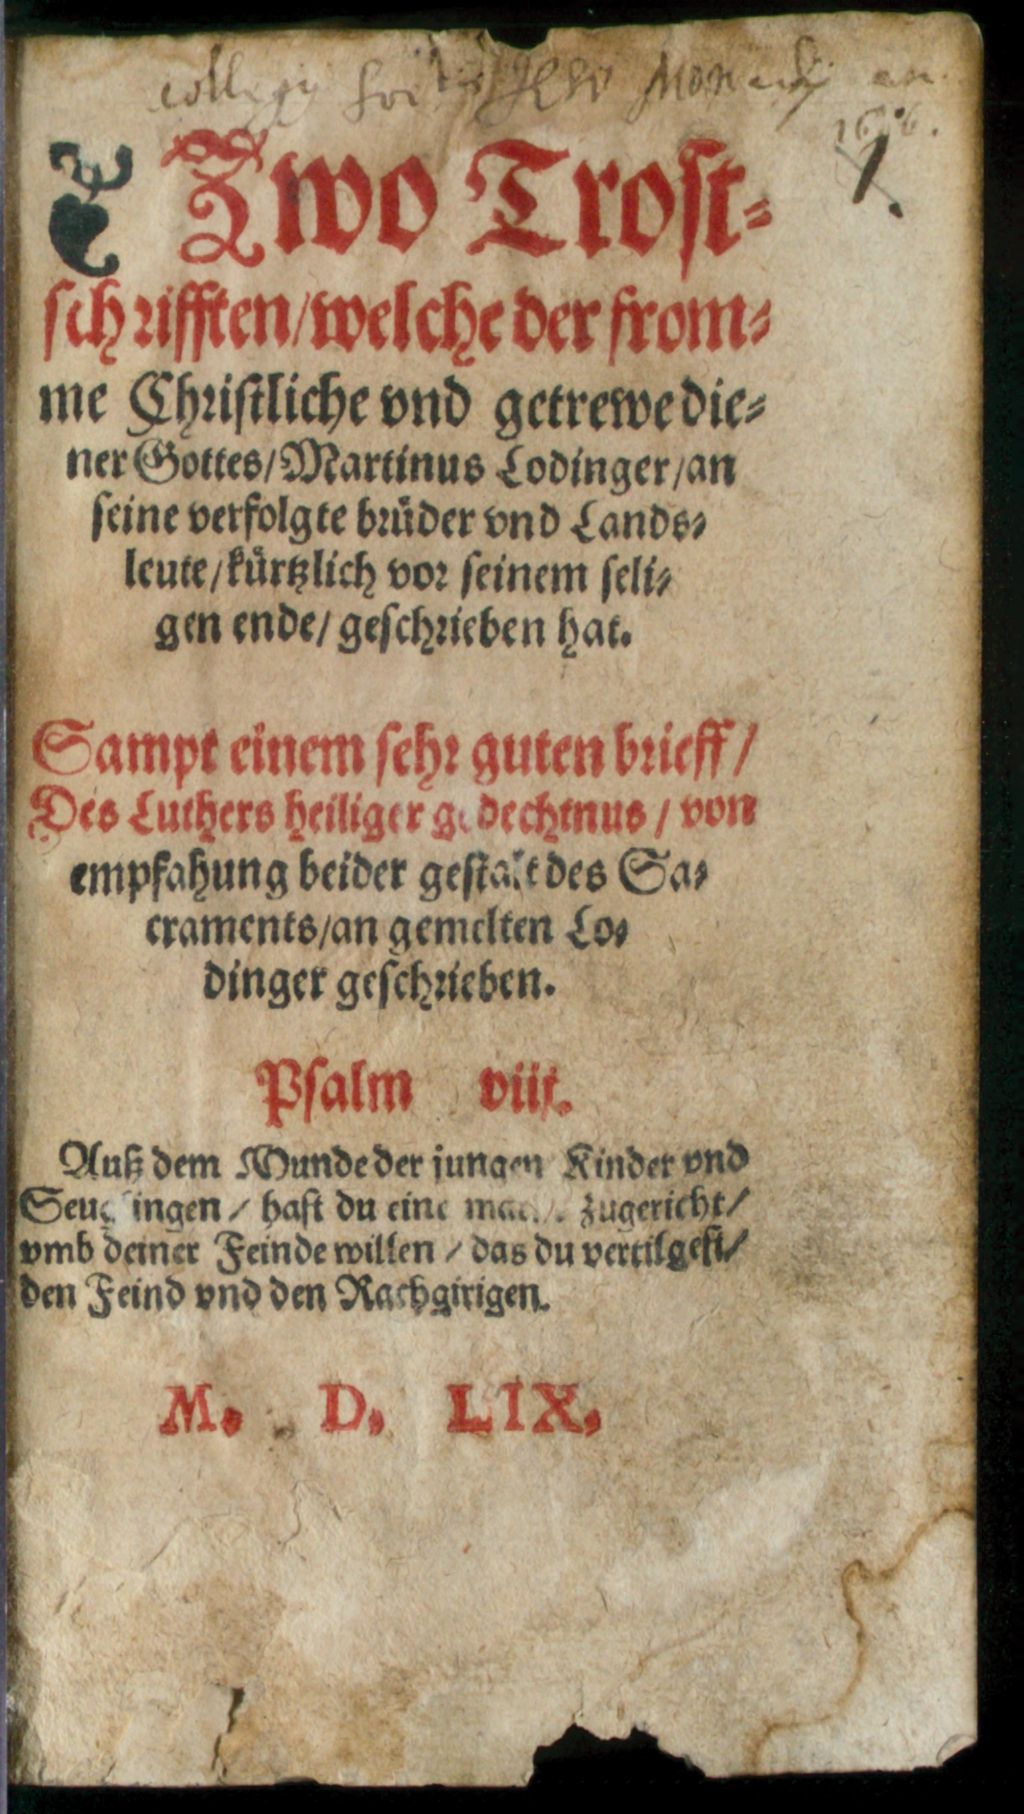 Collegij Soctis Jesu Monachij an.
Zwo Trost-
schrifften/welche der from-
me Christliche vnd getrewe die-
ner Gottes/Martinus Lodinger/an
seine verfolgte brüder vnd Lands-
leute/kürtzlich vor seinem seli-
gen ende/geschrieben hat.
Sampt einem sehr guten brieff/
Des Luthers heiliger gedechtnus/von
empfahung beider gestalt des Sa-
craments/an gemelten Lo-
dinger geschrieben.
Psalm viij.
Auß dem Munde der jungen Kinder vnd
Seuglingen/hast du eine macht zugericht/
vmb deiner Feinde willen/das du vertilgest/
den Feind vnd den Rachgirigen.
M. D. LIX.